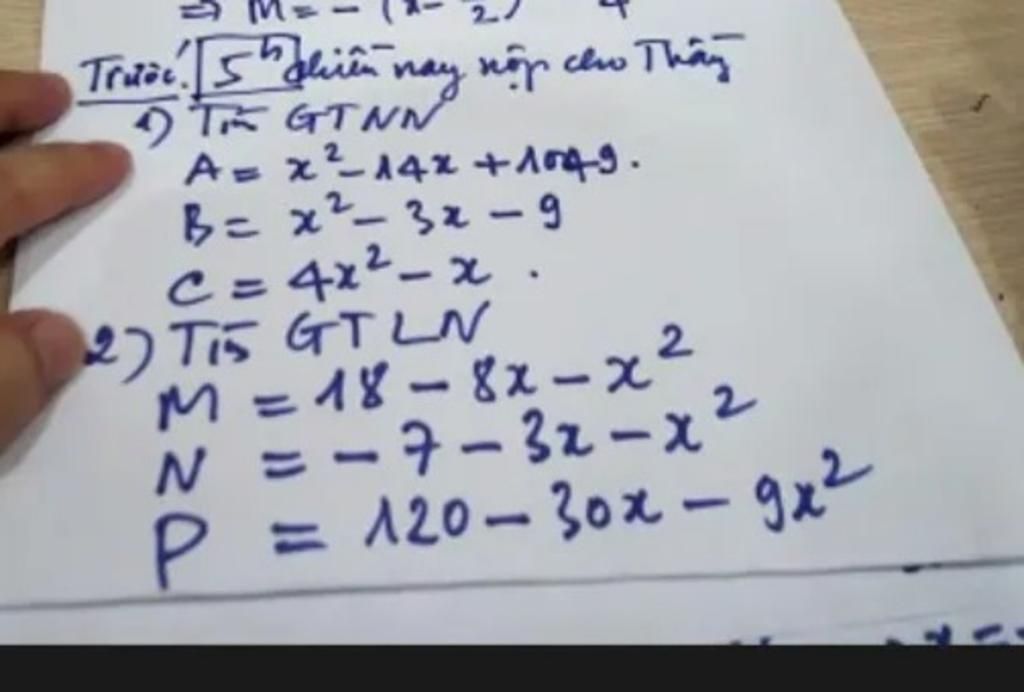 ⇒ M = - (x -
Trước! 5h chiều nay nộp cho Thầy
1) Tìm GTNN
A = x² - 14x + 1049.
B = x² - 3x - 9
C = 4x² - x .
2) Tìm GTLN
M = 18 - 8x - x²
N = - 7 - 3x - x²
P = 120 - 30x - 9x²